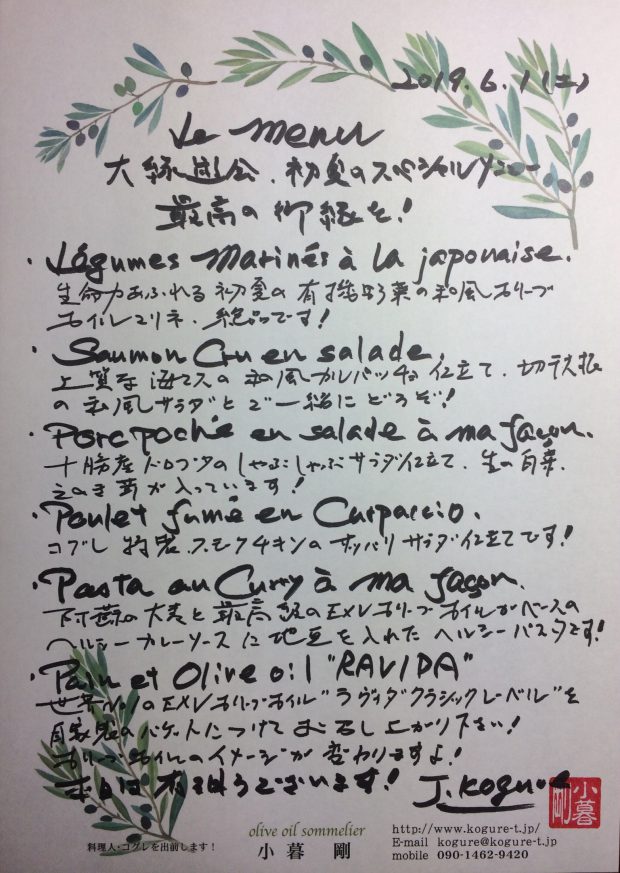 2019.6.1(土)
Le menu
大縁遊会、初夏のスペシャルメニュー
最高の御縁を!
・Légumes Marinés à la japonaise.
生命力あふれる初夏の有機野菜の和風オリーブ
オイルマリネ、絶品です!
・Saumon Cru en salade.
上質な海マスの和風カルパッチョ仕立て、切干大根
の和風サラダとご一緒にどうぞ!
・Porc poché en salade à ma façon.
十勝産ドロブタのしゃぶしゃぶサラダ仕立て、生の白
えのき茸が入っています!
・Poulet fumé en Carpaccio.
コグレ特製スモークチキンのサッパリサラダ仕立てです!
・Pasta au Curry à ma façon.
の大麦と最高級のEXVオリーブオイルがベースの
ヘルシーカレーソースに地豆を入れたヘルシーパスタです!
・Pain et Olive oil "RAVIDA"
世界No.1のEXVオリーブオイル"ラヴィダクラシックレーベル"を
自家製のバゲットにつけてお召し上がり下さい!
オリーブオイルのイメージが変わりますよ!
本日は有難うございます! J. Kogure
小暮剛
olive oil sommelier
料理人・コグレを出前します!
小暮 剛
http://www.kogure-t.jp/
E-mail kogure@kogure-t.jp
mobile 090-1462-9420